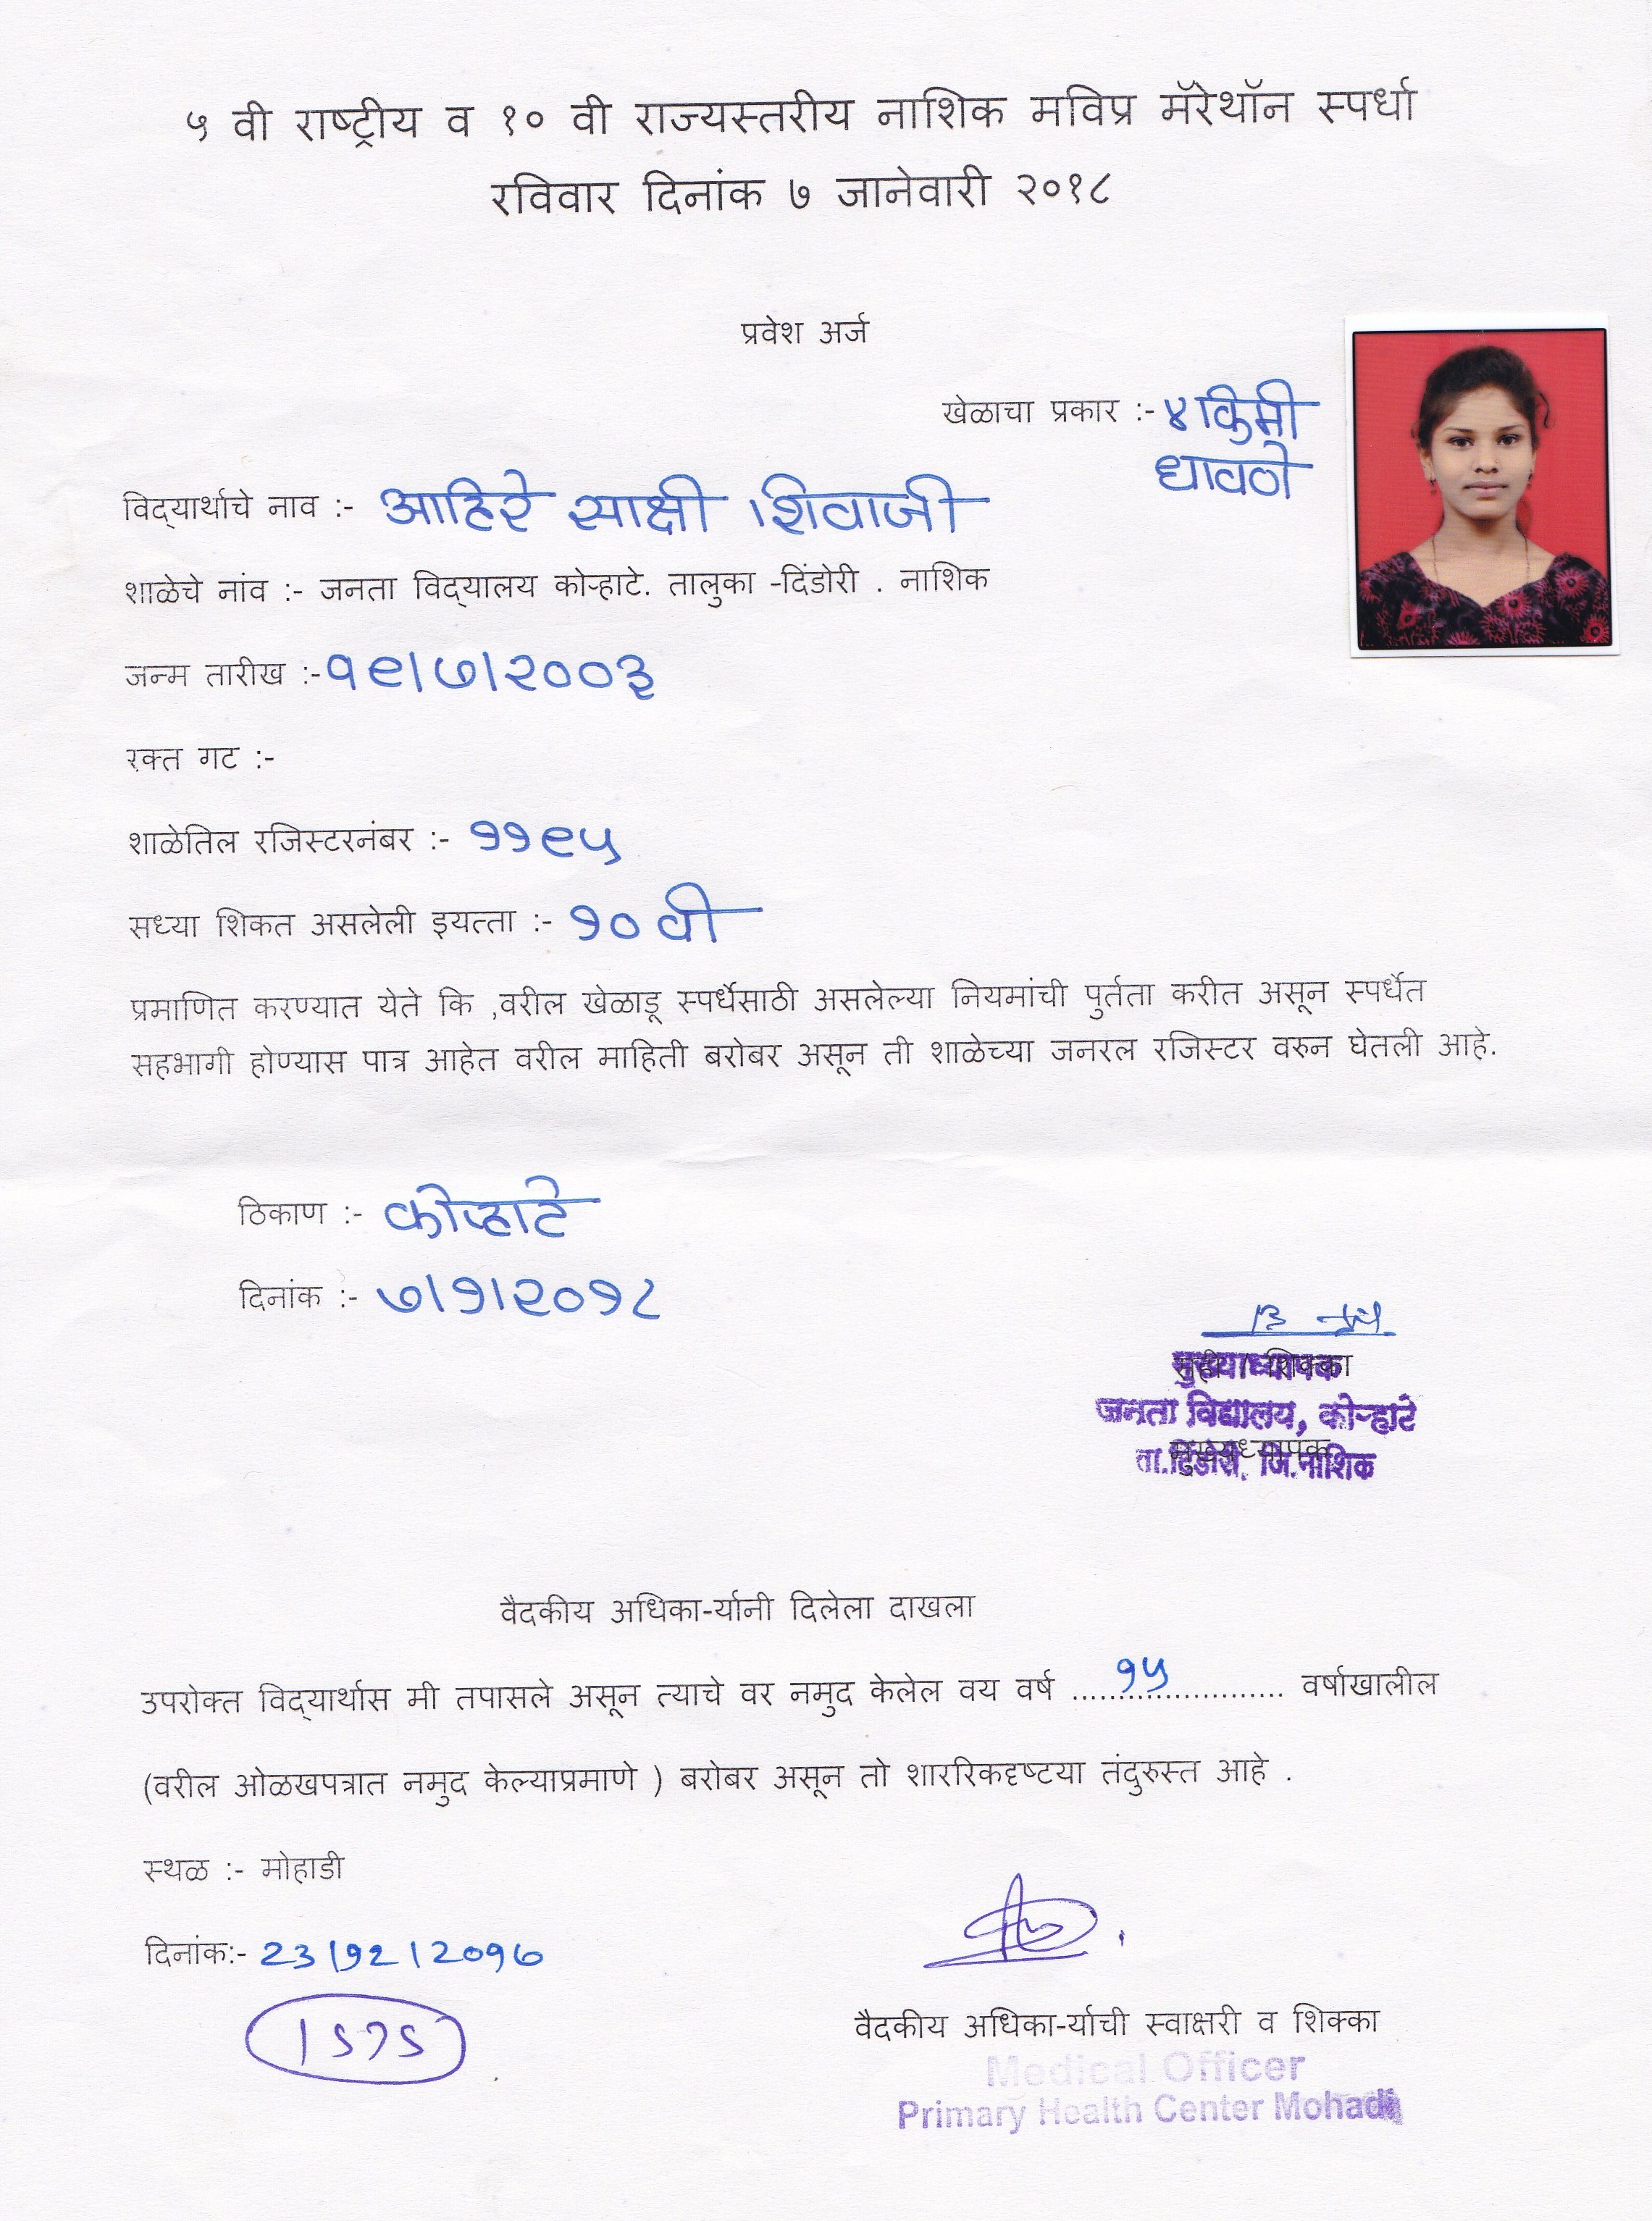 ५ वी राष्ट्रीय व १० वी राज्यस्तरीय नाशिक मविप्र मॅरेथॉन स्पर्धा
रविवार दिनांक ७ जानेवारी २०१८
प्रवेश अर्ज
खेळाचा प्रकार :- ४ किमी
धावणे
विद्यार्थाचे नाव :- आहिरे साक्षी शिवाजी
शाळेचे नांव :- जनता विद्यालय कोऱ्हाटे. तालुका -दिंडोरी . नाशिक
जन्म तारीख :- १९/७/२००३
रक्त गट :-
शाळेतिल रजिस्टरनंबर :- ११९५
सध्या शिकत असलेली इयत्ता :- १० वी
प्रमाणित करण्यात येते कि ,वरील खेळाडू स्पर्धेसाठी असलेल्या नियमांची पुर्तता करीत असून स्पर्धेत
सहभागी होण्यास पात्र आहेत वरील माहिती बरोबर असून ती शाळेच्या जनरल रजिस्टर वरुन घेतली आहे.
ठिकाण :- कोऱ्हाटे
दिनांक :- ७/१/२०१८
सही / शिक्का
मुख्याध्यापक
जनता विद्यालय, कोऱ्हाटे
मुख्यध्यापक
ता.दिंडोरी. जि.नाशिक
वैदकीय अधिका-र्यानी दिलेला दाखला
उपरोक्त विद्यार्थास मी तपासले असून त्याचे वर नमुद केलेल वय वर्ष ....१५.... वर्षाखालील
(वरील ओळखपत्रात नमुद केल्याप्रमाणे ) बरोबर असून तो शाररिकदृष्टया तंदुरुस्त आहे .
स्थळ :- मोहाडी
दिनांक:- 23/१2/2०१७
वैदकीय अधिका-र्याची स्वाक्षरी व शिक्का
Medical Officer
Primary Health Center Mohadi